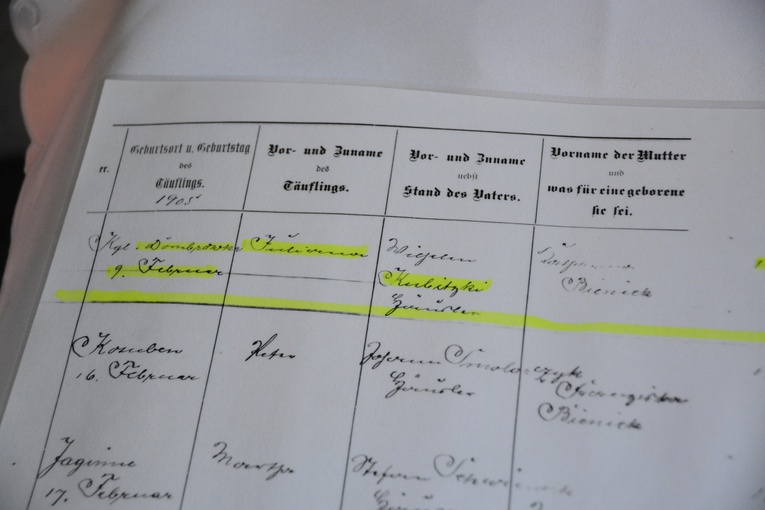 er.
Geburtsort u. Geburtstag
des
Täuflings.
1905
Vor- und Zuname
des
Täuflings.
Vor- und Zuname
nebst
Stand des Vaters.
Vorname der Mutter
und
was für eine geborene
sie sei.
Kgl. Dombrowka
9. Februar
Juliana
Wilhelm
Kubitzki
Häusler
Bienick
Kosuben
16. Februar
Peter
Johann Smolarczyk
Häusler
Franziska
Bienick
17. Februar
Martha
Stefan